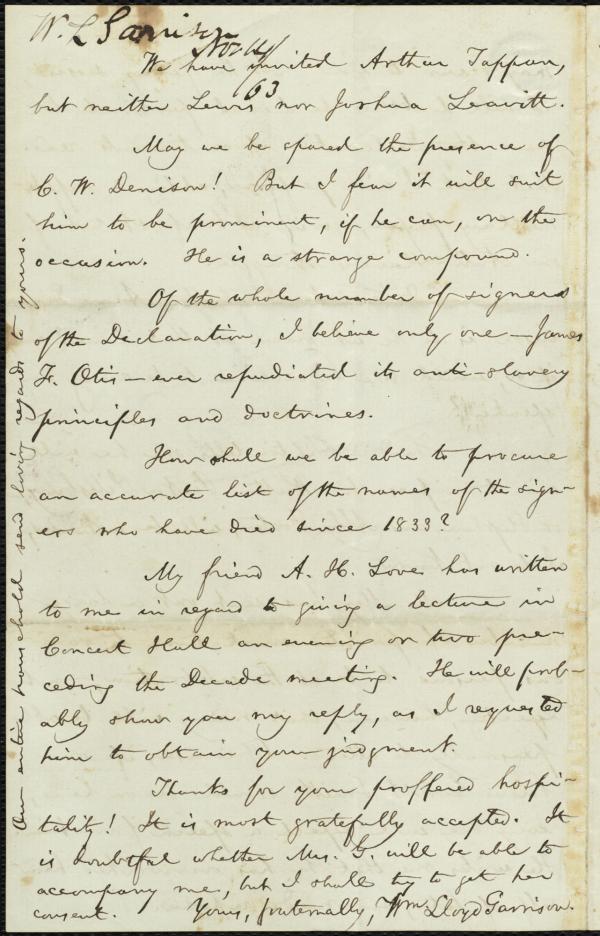 W. L. Garrison
Nov 14/
63
We have invited Arthur Tappan,
but neither Lewis nor Joshua Leavitt.
May we be spared the presence of
C. W. Denison! But I fear it will suit
him to be prominent, if he can, on the
occasion. He is a strange compound.
Of the whole number of signers
of the Declaration, I believe only one—James
F. Otis—ever repudiated its anti-slavery
principles and doctrines.
How shall we be able to procure
an accurate list of the names of the sign-
ers who have died since 1833?
My friend A. H. Love has written
to me in regard to giving a lecture in
Concert Hall an evening or two pre-
ceding the Decade meeting. He will prob-
ably show you my reply, as I requested
him to obtain your judgment.
Thanks for your proffered hospi-
tality! It is most gratefully accepted. It
is doubtful whether Mrs. G. will be able to
accompany me, but I shall try to get her
consent. Yours, fraternally, Wm. Lloyd Garrison.
Our entire household send loving regards to yours.